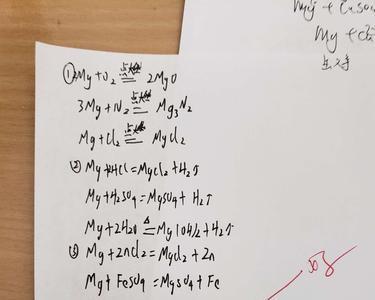 Mg + CuSO
Mg + Cl2
①2Mg+O2 点燃== 2MgO
3Mg+N2 点燃== Mg3N2
Mg+Cl2 点燃== MgCl2
② Mg+HCl=MgCl2+H2↑
Mg+H2SO4=MgSO4+H2↑
Mg+2H2O △== Mg(OH)2+H2↑
③ Mg+ZnCl2=MgCl2+Zn
Mg+FeSO4=MgSO4+Fe